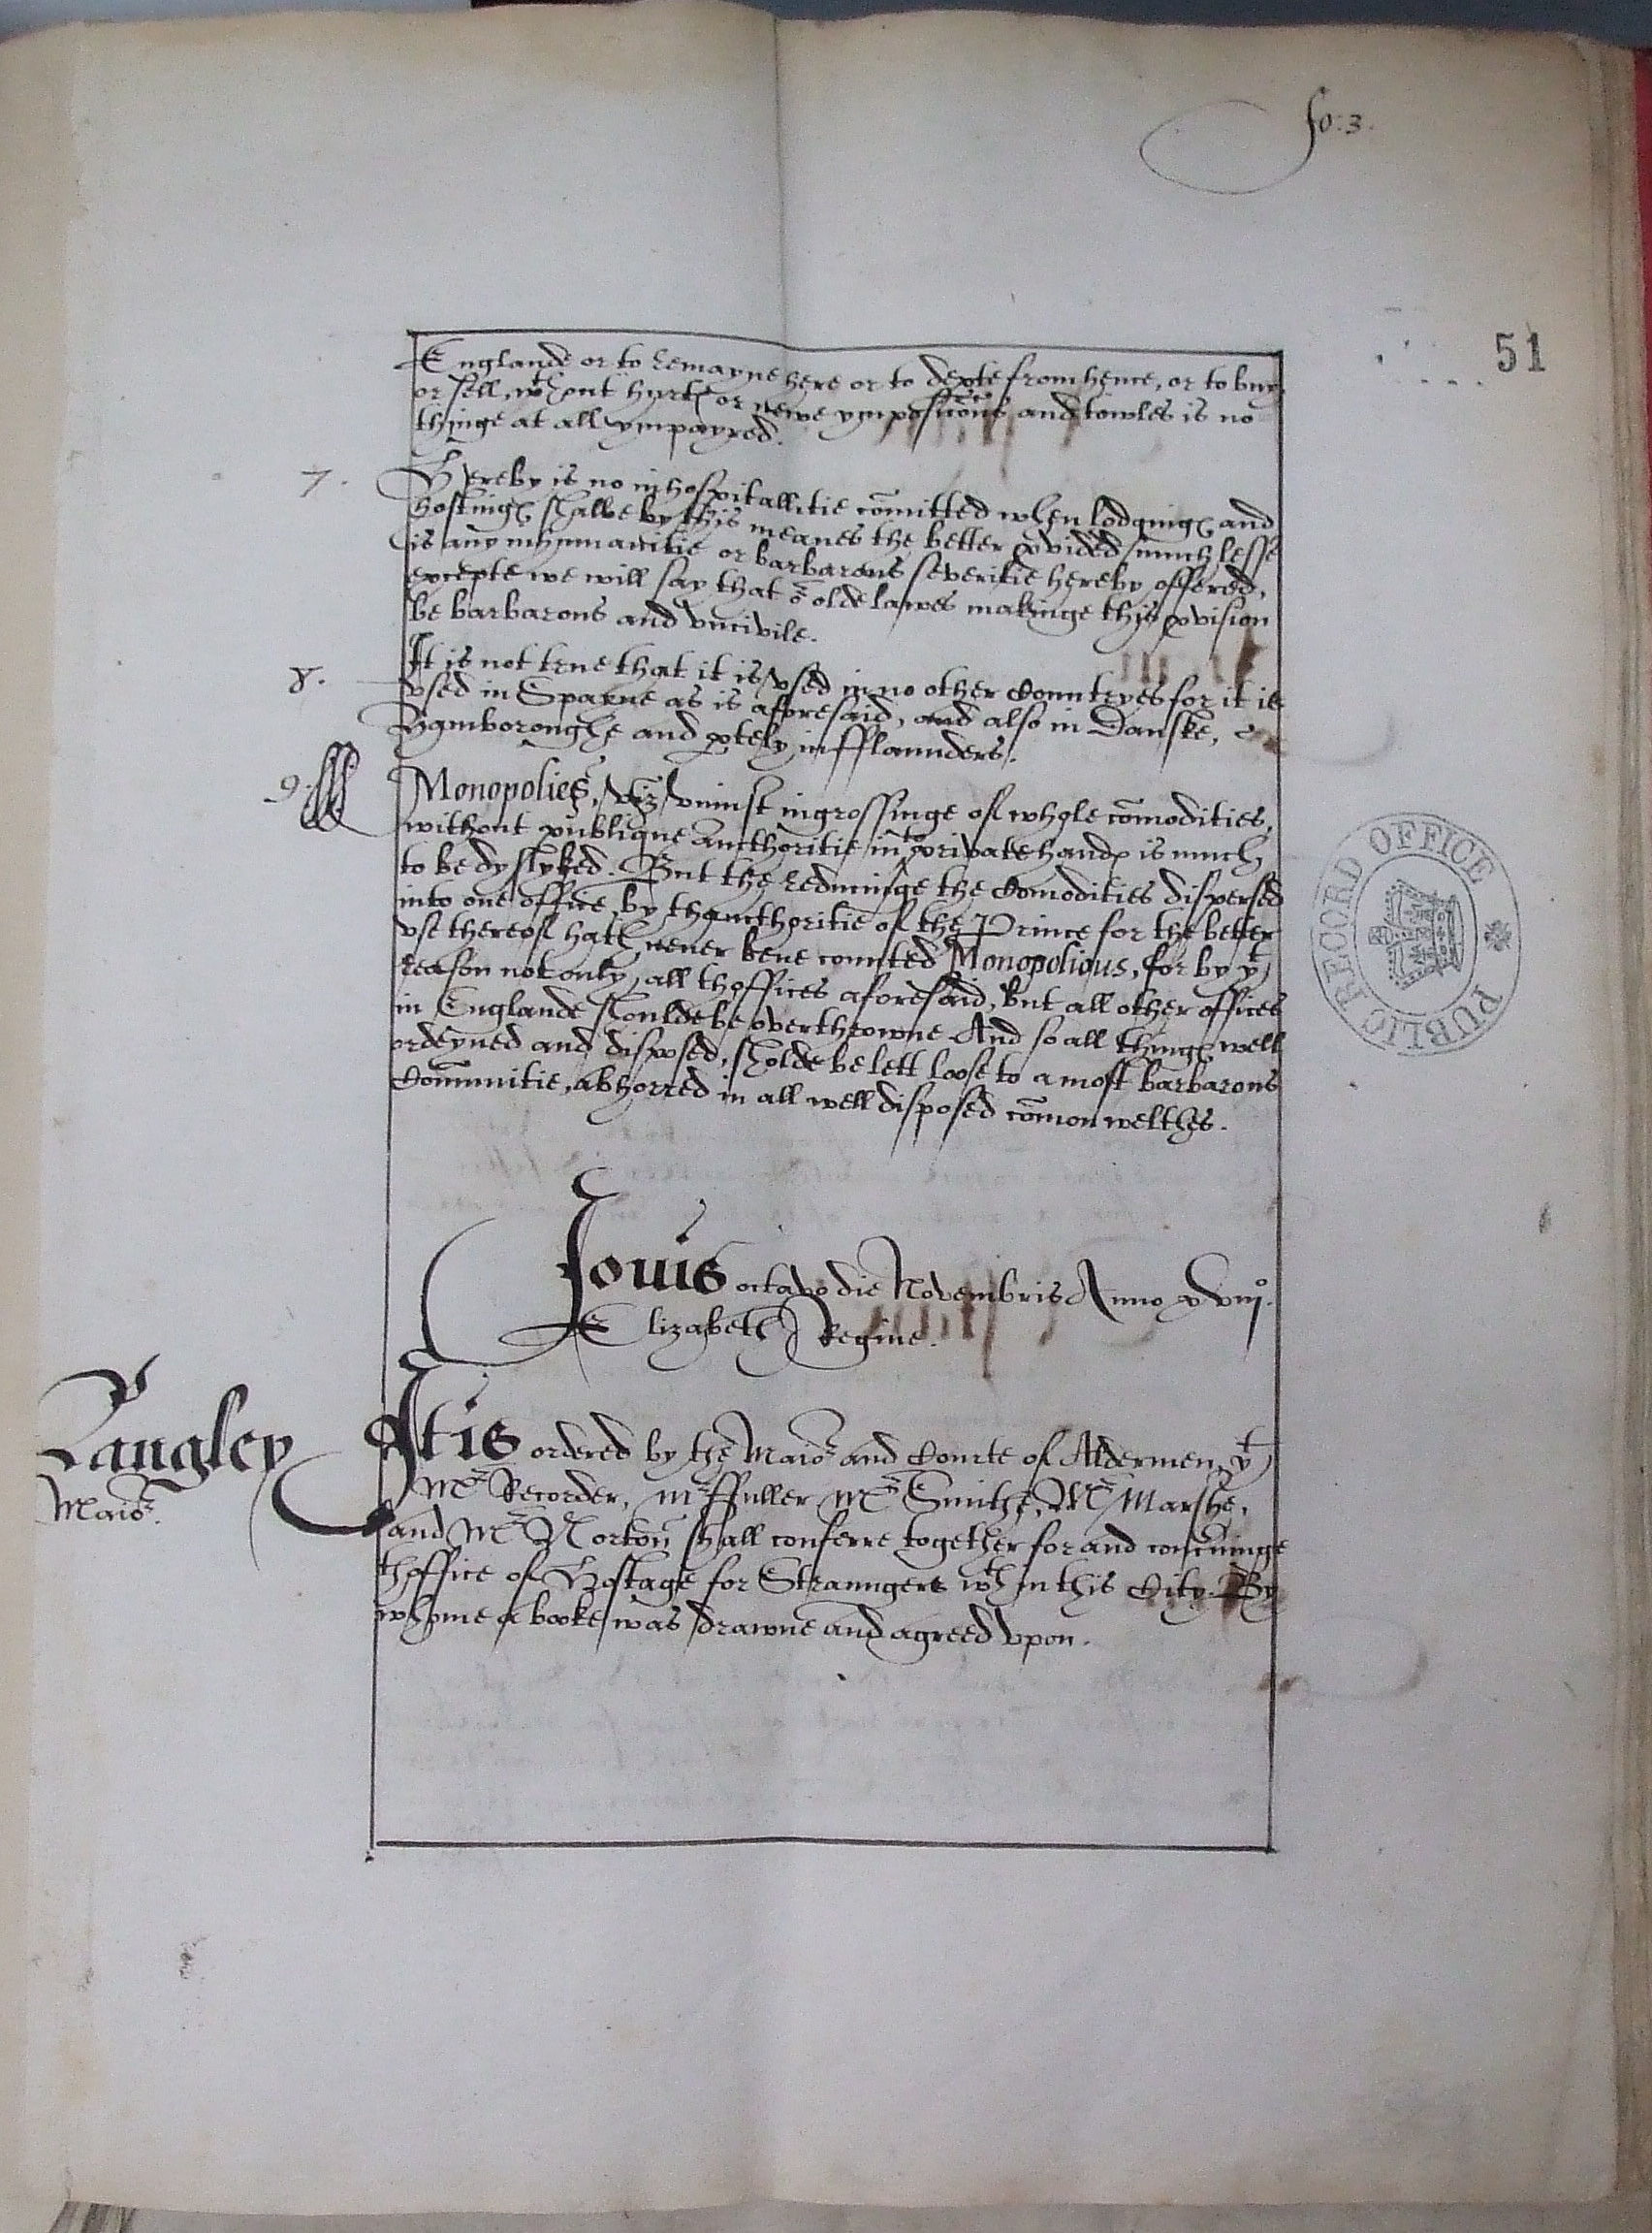 fo: 3.
51
Englande or to remayne here or to depte from hence, or to buy,
or sell, wthout hurte or newe ymposicõns and towles is no
thinge at all ympayred.
7. Hereby is no inhospitallitie cõmitted when lodginge and
hostinge shalbe by this meanes the better pvided, much lesse
is any inhumanitie or barbarous severitie hereby offered,
excepte we will say that or olde lawes makinge this pvision
be barbarous and uncivile.
8. It is not true that it is vsed in no other Countryes for it is
vsed in Spayne as is aforesaid, and also in Danske,
Hamboroughe and ptely in fflaunders.
9. Monopolies, viz vniust ingrossinge of whole cõmodities,
without publique aucthoritie into private hande is much
to be dyslyked. But the reducinge the Comodities dispersed
into one office by thaucthoritie of the Prince for the better
vse thereof hath never bene counted Monopolious, for by yt
reason not only all thoffices aforesaid, but all other offices
in Englande shoulde be overthrowne And so all thinge well
ordeyned and disposed, sholde be lett loose to a most barbarous
Cõmunitie, abhorred in all well disposed cõmon welthes.
Jouis octavo die Novembris Anno xviijo.
Elizabeth Regine.
Langley
Maior.
It is ordered by the Maior and Courte of Aldermen, yt
Mr Recorder, Mr ffuller Mr Smithe, Mr Marshe,
and Mr Norton shall conferre together for and concninge
thoffice of Hostage for Straungers wthin this City. By
whome a booke was drawne and agreed vpon.
PUBLIC RECORD OFFICE